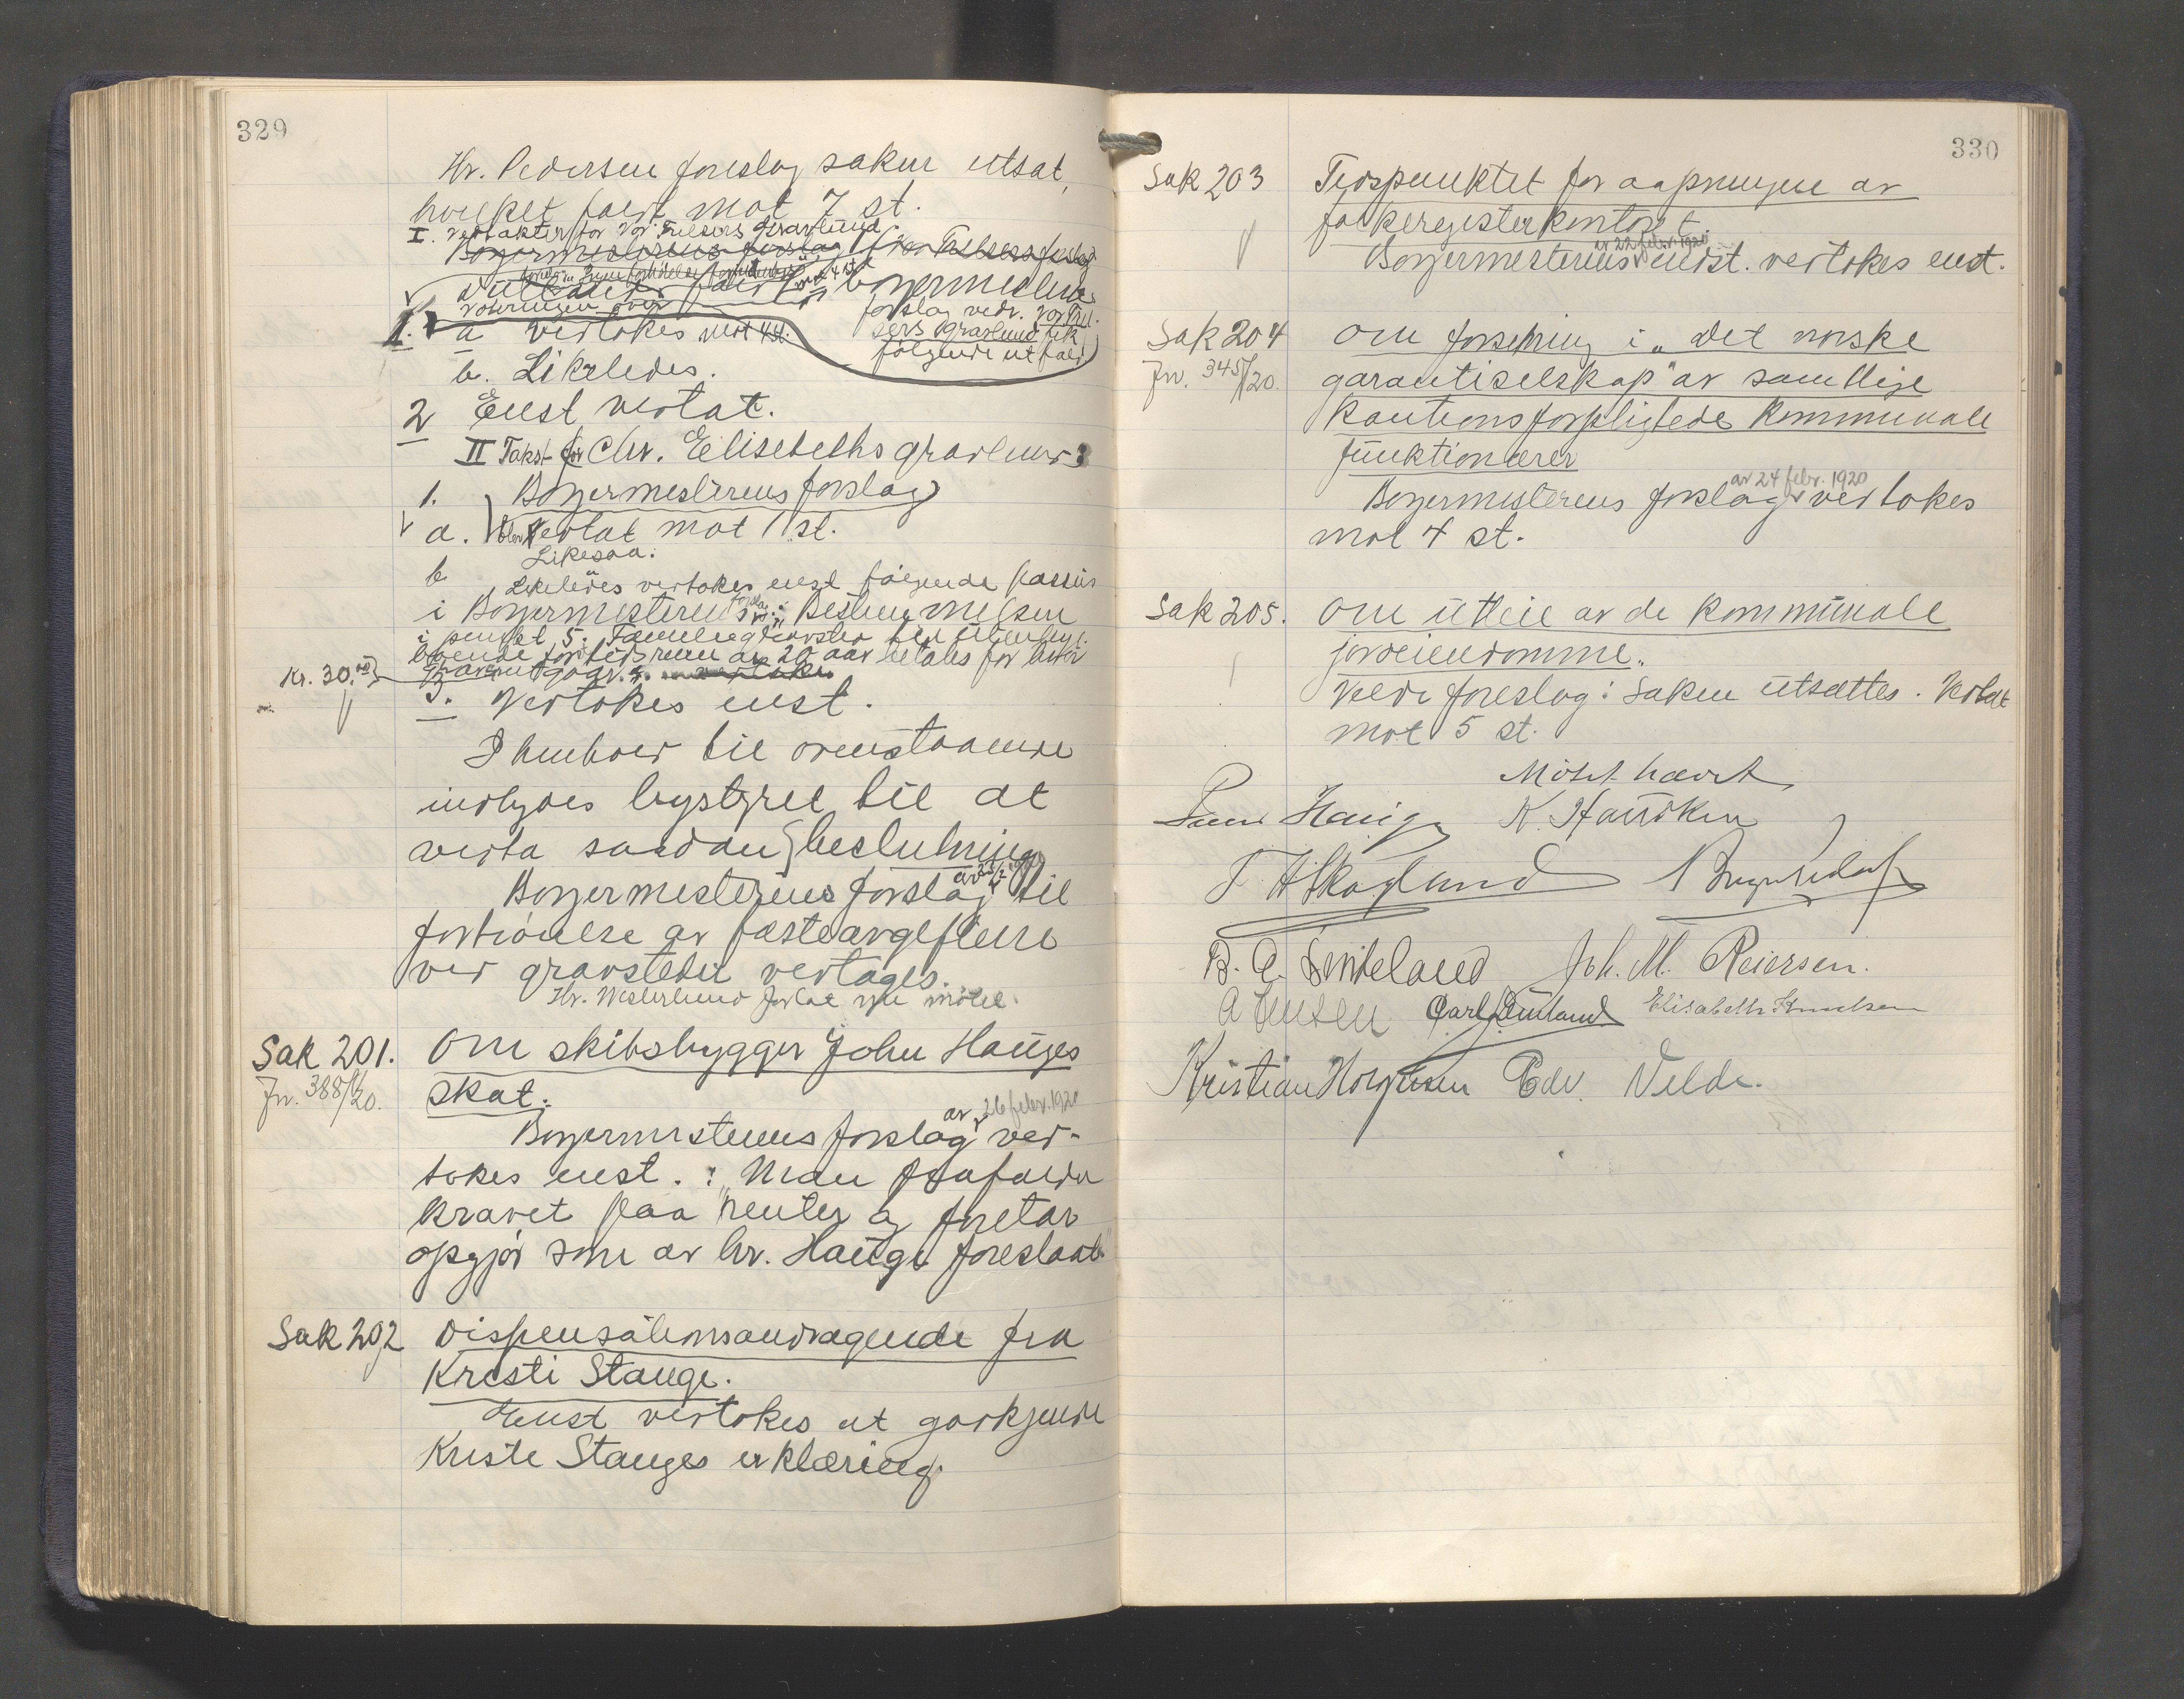 329
Hr. Pedersen foreslog saken utsat,
hvilket faldt mot 7 st.
I. Vedtækter for Vor Frelsers Gravlund
Borgermesterens forslag
votering over
borgermesterens
forslag vedr. Vor Frel-
sers gravlund fik
følgende utfald
1. a vedtokes mot 4 st.
b. Likeledes.
2 Enst vedtat.
II Takst for Chr. Elisebeths gravlund:
1. Borgermesterens forslag
a. blev vedtat mot 1 st.
b Likesaa.
Likeledes vedtokes enst følgende passus
i Borgermesterens forslag: Bestemmelsen
i punkt 5. Familiegravsted til utenbys
boende for tidsrum av 20 aar betales for hver
Kr. 30.00
grav
3. Vedtokes enst.
I henhold til ovenstaaende
indbydes bystyret til at
vedta saadan beslutning
Borgermesterens forslag av til
forhøielse av fæsteavgiftene
ved gravsteder vedtages.
Hr. Westerlund forlot nu møtet.
Sak 201.
Jnr. 388/20.
Om skibsbygger John Hauges
skat.
Borgermesterens forslag av 26 febr. 1920 ved-
tokes enst. : "Man frafalder
kravet paa renter og foretar
opgjør som av hr. Hauge foreslaat"
Sak 202
Dispensationsandragende fra
Kristi Stange.
Enst vedtokes at godkjende
Kriste Stanges erklæring.
330
Sak 203
Tidspunktet for aapningen av
folkeregisterkontoret.
Borgermesterens av 22 febr. 1920 indst. vedtokes enst.
Sak 204
Jnr. 345/20.
Om forsikring i "Det norske
garantiselskap" av samtlige
kautionsforpligtede kommunale
funktionærer
Borgermesterens forslag av 24 febr. 1920 vedtokes
mot 4 st.
Sak 205.
Om utleie av de kommunale
jordeiendomme.
Velde foreslog: Saken utsættes. Vedtat
mot 5 st.
Møtet hævet
Hauge K. Hauvken
T. H. Skogland
B. A. Lindeland Joh. M. Reiersen.
A Jensen Carl Elisabeth Knudsen
Kristian Edv. Velde.